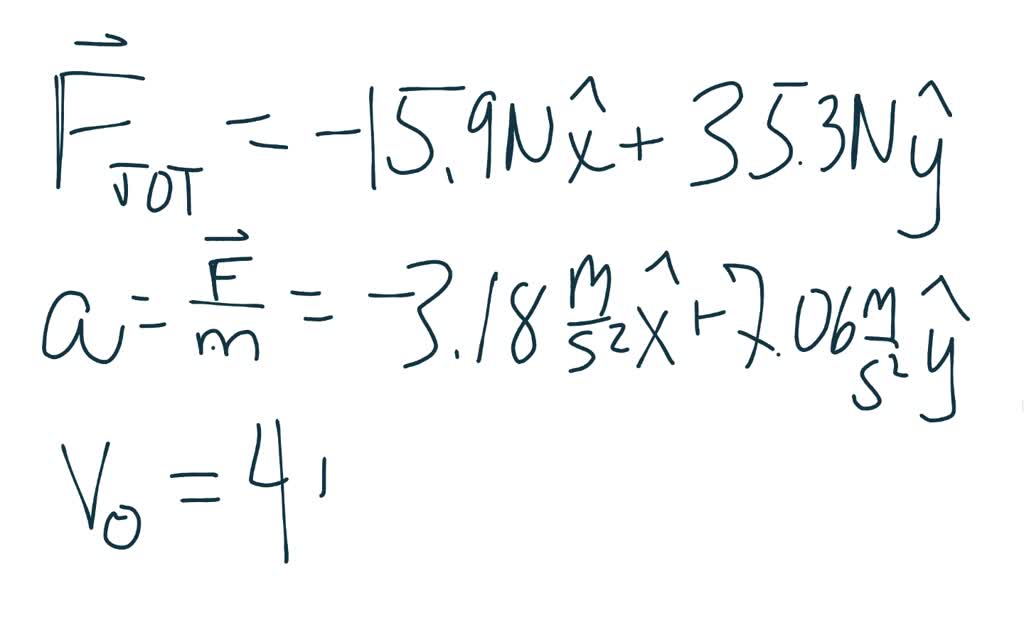 F⃗_TOT = -15.9N x̂ + 35.3N ŷ
a = F⃗/m = -3.18 m/s² x̂ + 7.06 m/s² ŷ
V₀ = 4